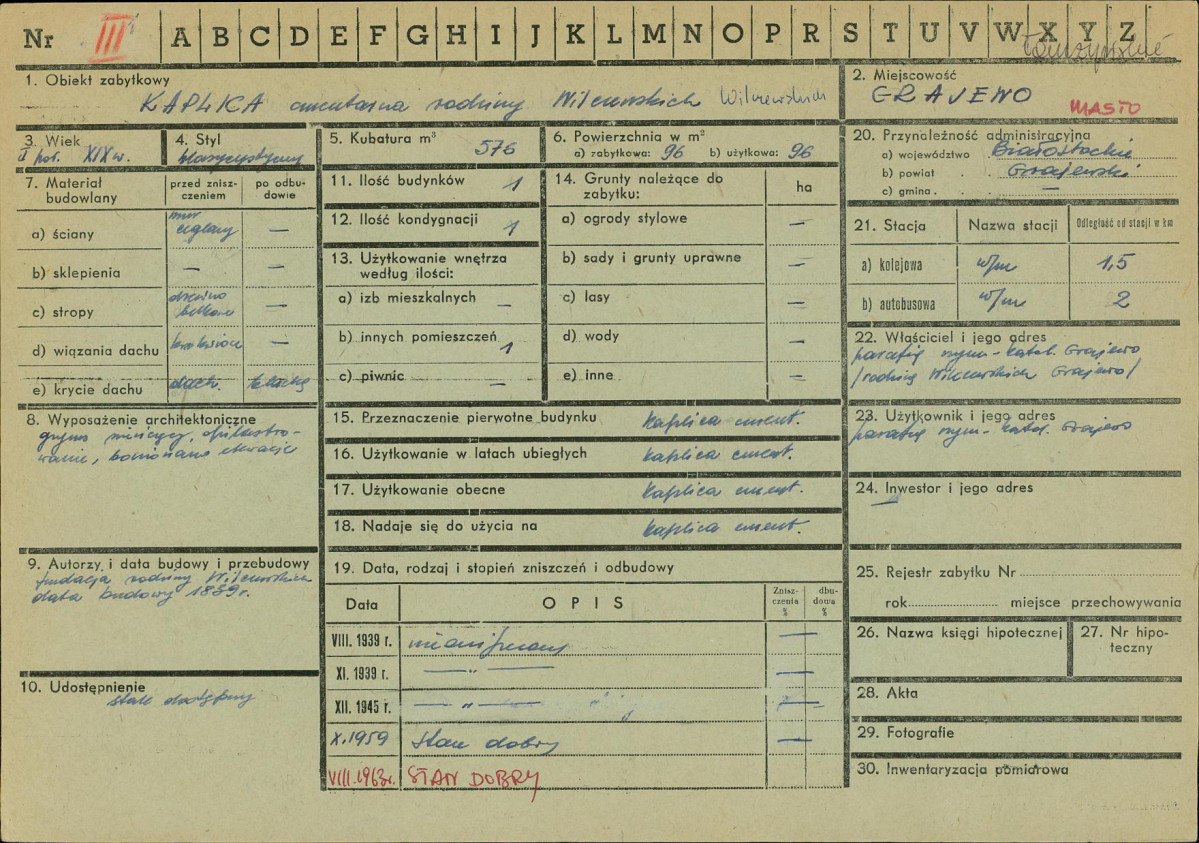 Nr III A B C D E F G H I J K L M N O P R S T U V W X Y Z
1. Obiekt zabytkowy
KAPLICA cmentarna rodziny Wilczewskich Wilczewskich
2. Miejscowość
GRAJEWO
MIASTO
3. Wiek
II poł. XIX w.
4. Styl
klasycystyczny
5. Kubatura m³ 576
6. Powierzchnia w m²
a) zabytkowa: 96 b) użytkowa: 96
7. Materiał budowlany
przed zniszczeniem
po odbudowie
a) ściany mur ceglany —
b) sklepienia — —
c) stropy drewno belkowe —
d) wiązania dachu krokwiowe —
e) krycie dachu dach. blachą
8. Wyposażenie architektoniczne
9. Autorzy i data budowy i przebudowy
fundacja rodziny Wilczewskich
data budowy 1889 r.
10. Udostępnienie
stale dostępny
11. Ilość budynków 1
12. Ilość kondygnacji 1
13. Użytkowanie wnętrza
według ilości:
a) izb mieszkalnych —
b) innych pomieszczeń 1
c) piwnic —
14. Grunty należące do
zabytku: ha
a) ogrody stylowe —
b) sady i grunty uprawne —
c) lasy —
d) wody —
e) inne —
15. Przeznaczenie pierwotne budynku kaplica cment.
16. Użytkowanie w latach ubiegłych kaplica cment.
17. Użytkowanie obecne kaplica cment.
18. Nadaje się do użycia na kaplica cment.
19. Data, rodzaj i stopień zniszczeń i odbudowy
Data OPIS Zniszczenia % dbudowa %
VIII. 1939 r. —
XI. 1939 r. — " — —
XII. 1945 r. — " — " —
X. 1959 stan dobry —
VIII. 1963 r. STAN DOBRY
20. Przynależność administracyjna
a) województwo Białostockie
b) powiat Grajewski
c) gmina —
21. Stacja Nazwa stacji Odległość od stacji w km
a) kolejowa w/m 1,5
b) autobusowa w/m 2
22. Właściciel i jego adres
parafia rzym-katol. Grajewo
/rodzina Wilczewskich Grajewo/
23. Użytkownik i jego adres
parafia rzym-katol. Grajewo
24. Inwestor i jego adres
—
25. Rejestr zabytku Nr
rok miejsce przechowywania
26. Nazwa księgi hipotecznej
27. Nr hipoteczny
28. Akta
29. Fotografie
30. Inwentaryzacja pomiarowa